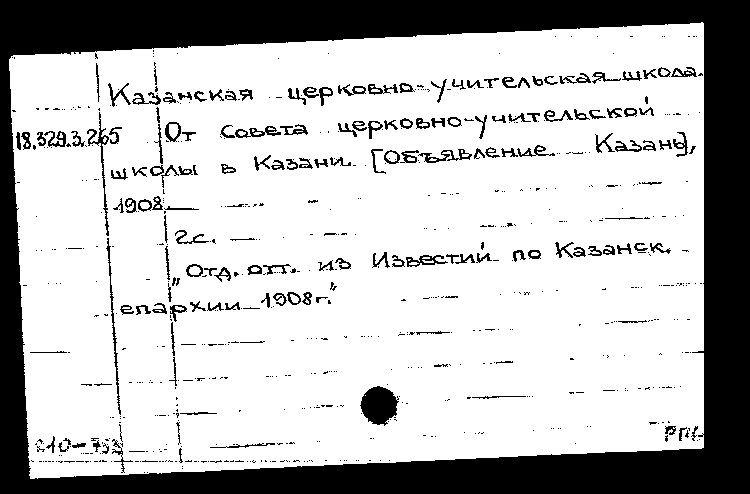 Казанская церковно-учительская школа.
18.329.3.265 От Совета церковно-учительской
школы в Казани. [Объявление. Казань],
1908.
2 с.
„Отд. отт. из Известий по Казанск.
епархии 1908г."
210-753